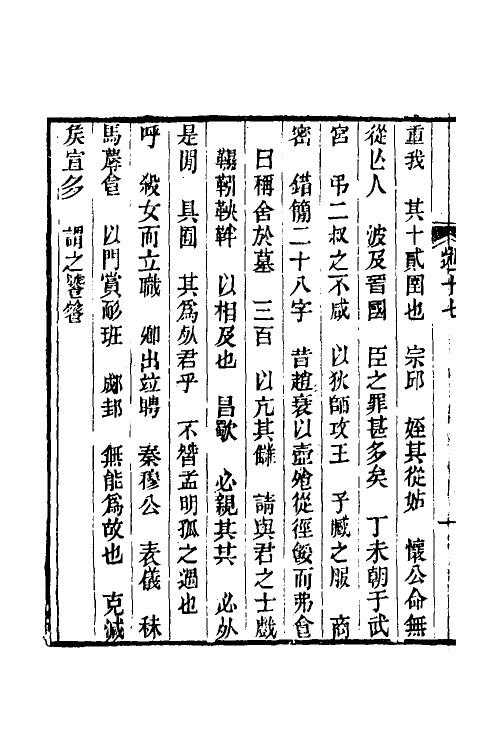 重我　其十貳圉也　宗邱　姪其從姑　懷公命無
從亾人　波及晉國　臣之罪甚多矣　丁未朝于武
宮　弔二叔之不咸　以狄師攻王　子臧之服　商
密　錯簡二十八字　昔趙衰以壺飱從徑餒而弗食
曰稱舍於墓　三百　以亢其讎　請與君之士戲
韅靷鞅靽　以相及也　昌歜　必親其共　必外
是閒　具囿　其爲外君乎　不替孟明孤之過也
呼　殺女而立職　卿出竝聘　秦穆公　表儀　秣
馬蓐食　以門賞耏班　郕邽　無能爲故也　克減
矦宣多　謂之饕餮
十七